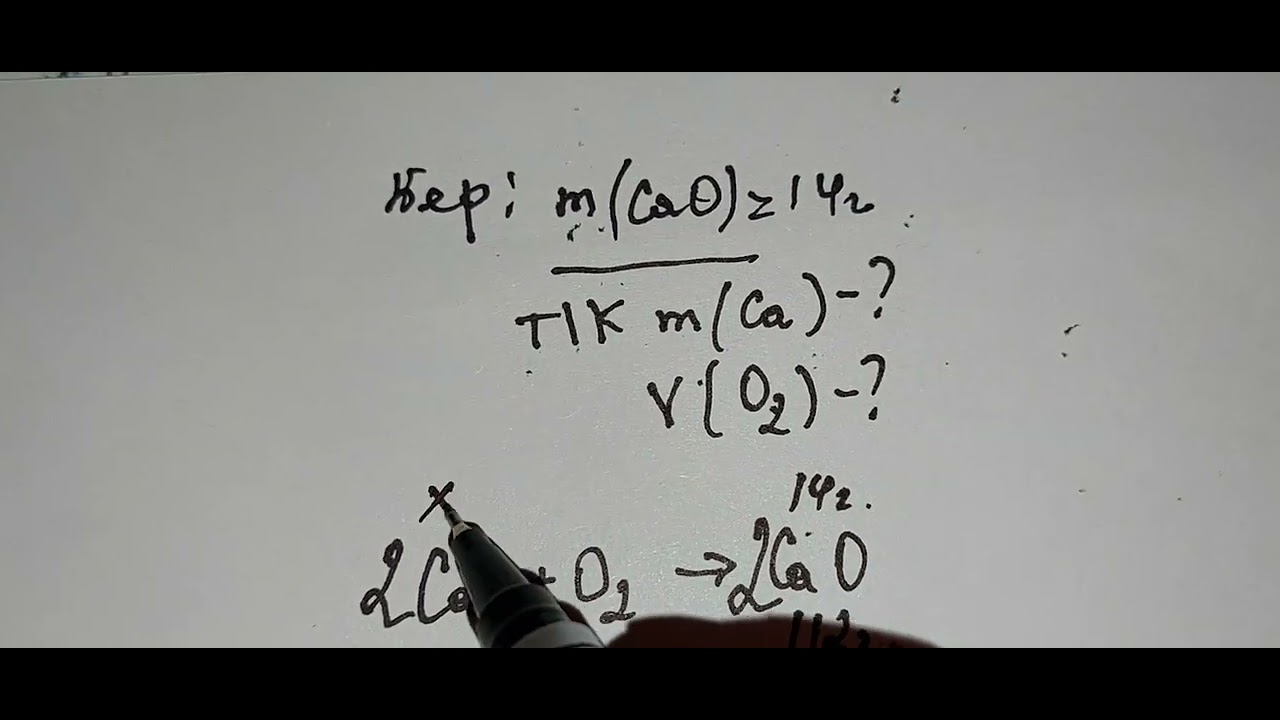 Бер: m(CaO)=14г
Т/К m(Ca)-?
V(O₂)-?
x 14г.
2Ca + O₂ → 2CaO
112г.